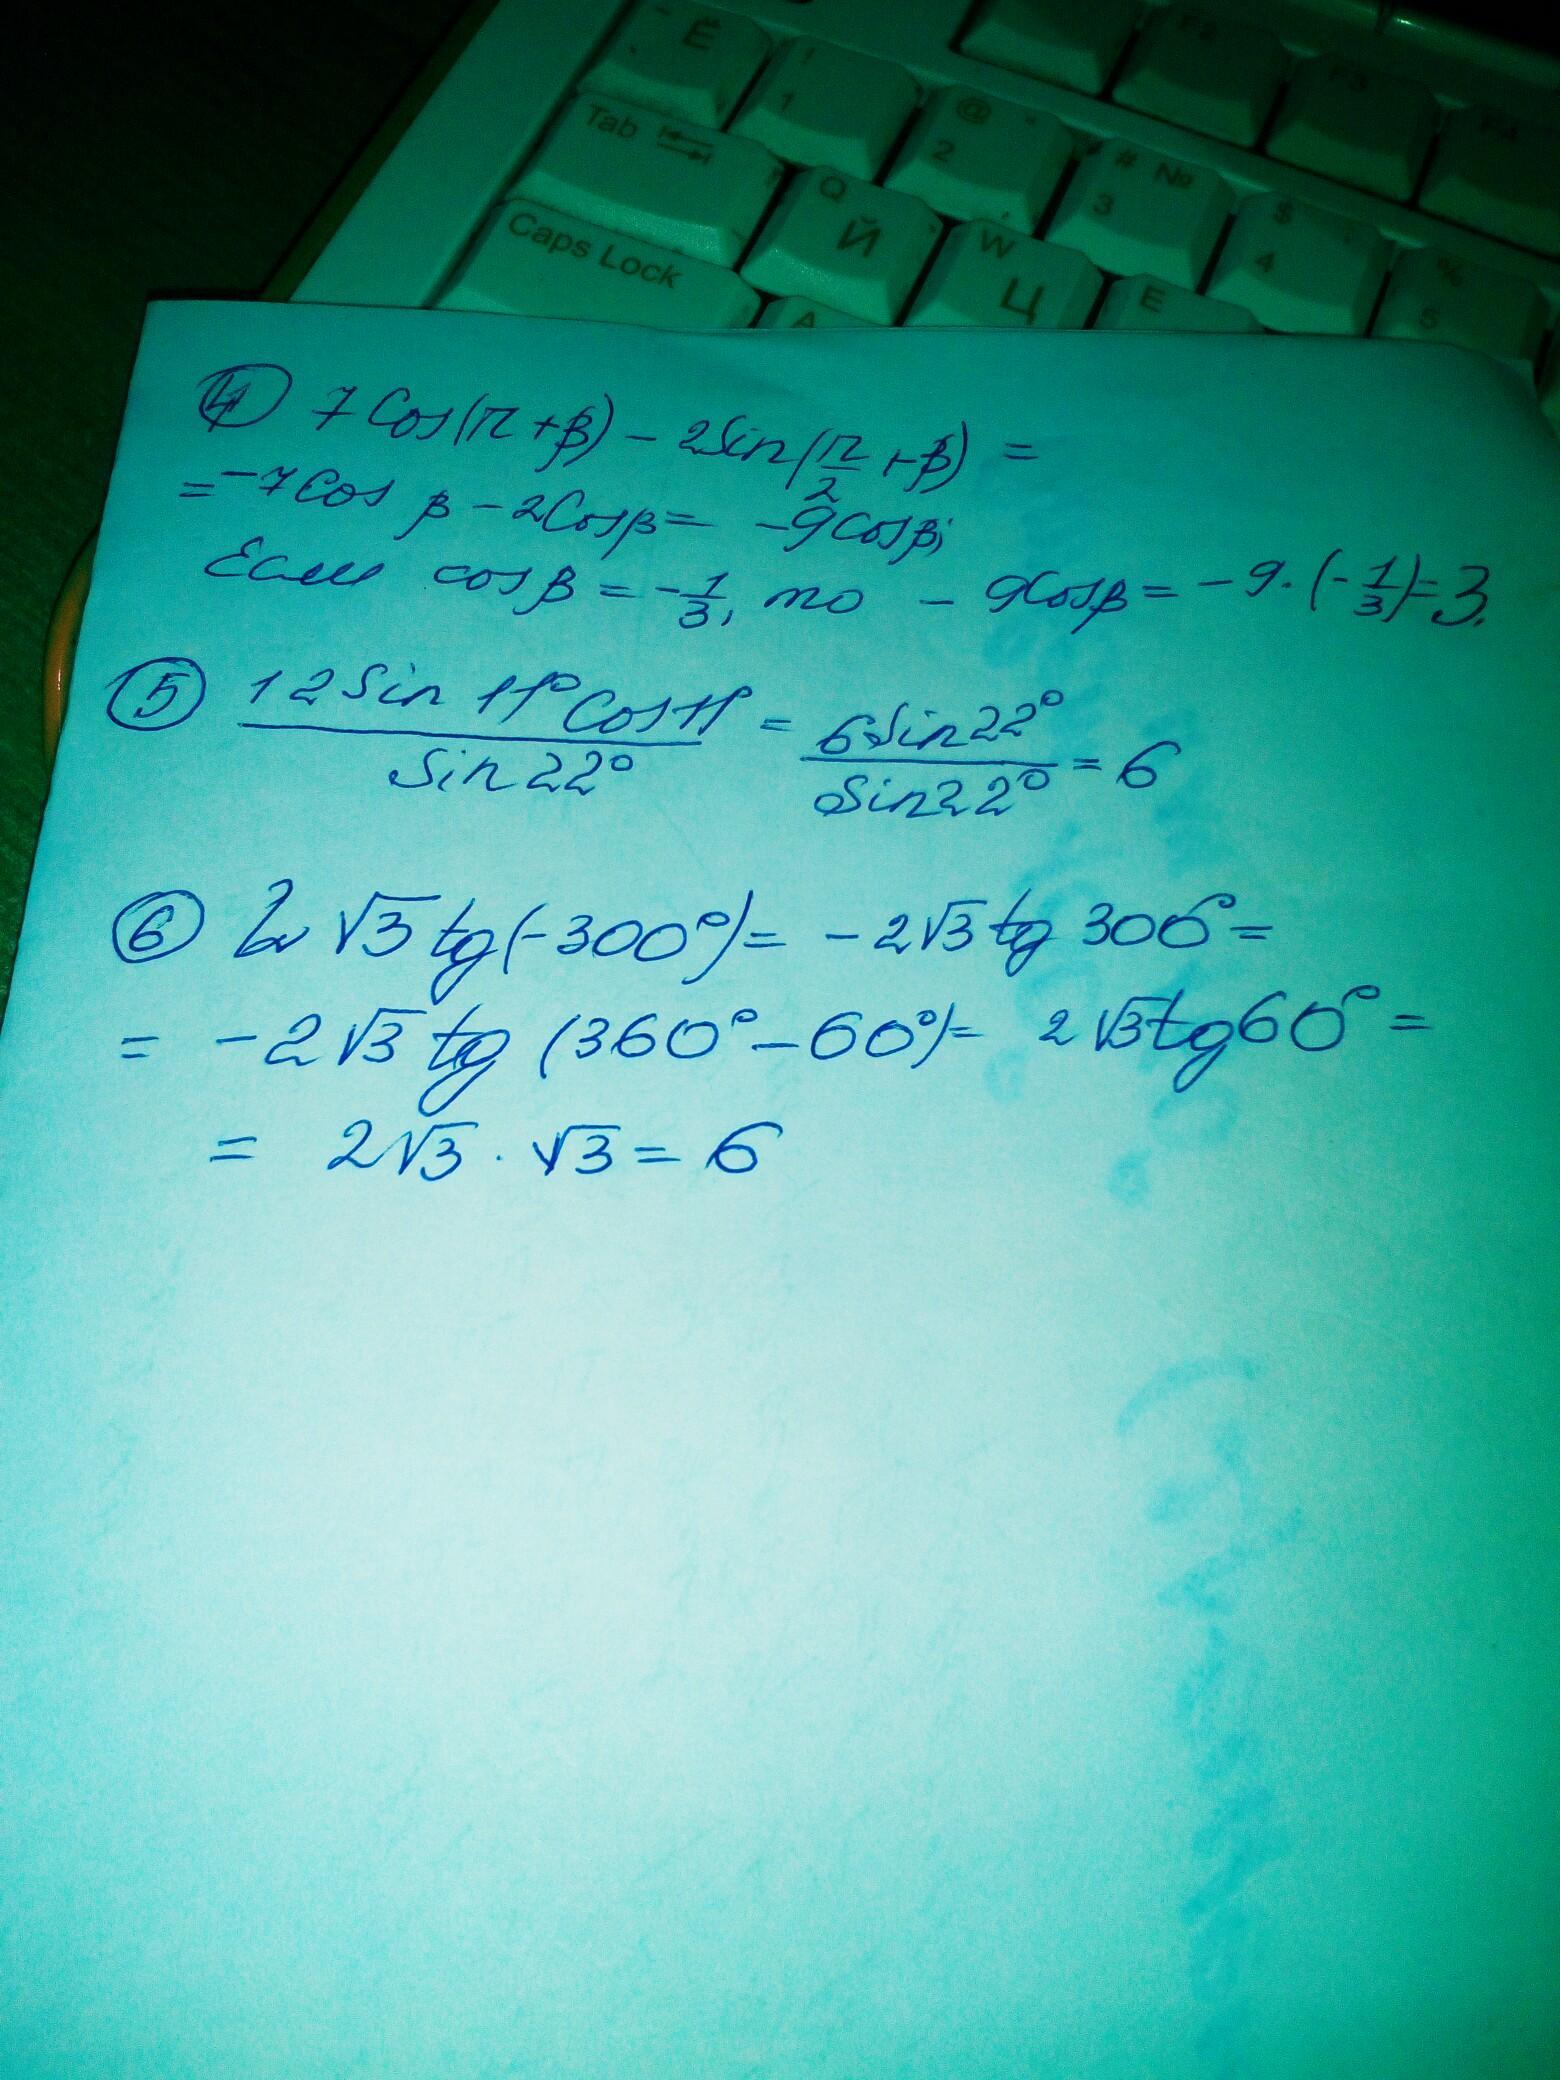 ~ Ё
! 1
F2
F3
F4
Tab
@ 2
# № 3
$ ; 4
% 5
Caps Lock
Q Й
W Ц
E
A
④ 7Cos(π+β) – 2Sin(π/2+β) =
= –7Cos β – 2Cosβ = –9Cosβ;
Если cosβ = –1/3, то –9Cosβ = –9·(–1/3)=3.
⑤ 12Sin 11° Cos11° / Sin22° = 6Sin22° / Sin22° = 6
⑥ 2√3 tg(–300°) = –2√3 tg 300° =
= –2√3 tg (360° – 60°) = 2√3tg60° =
= 2√3 · √3 = 6